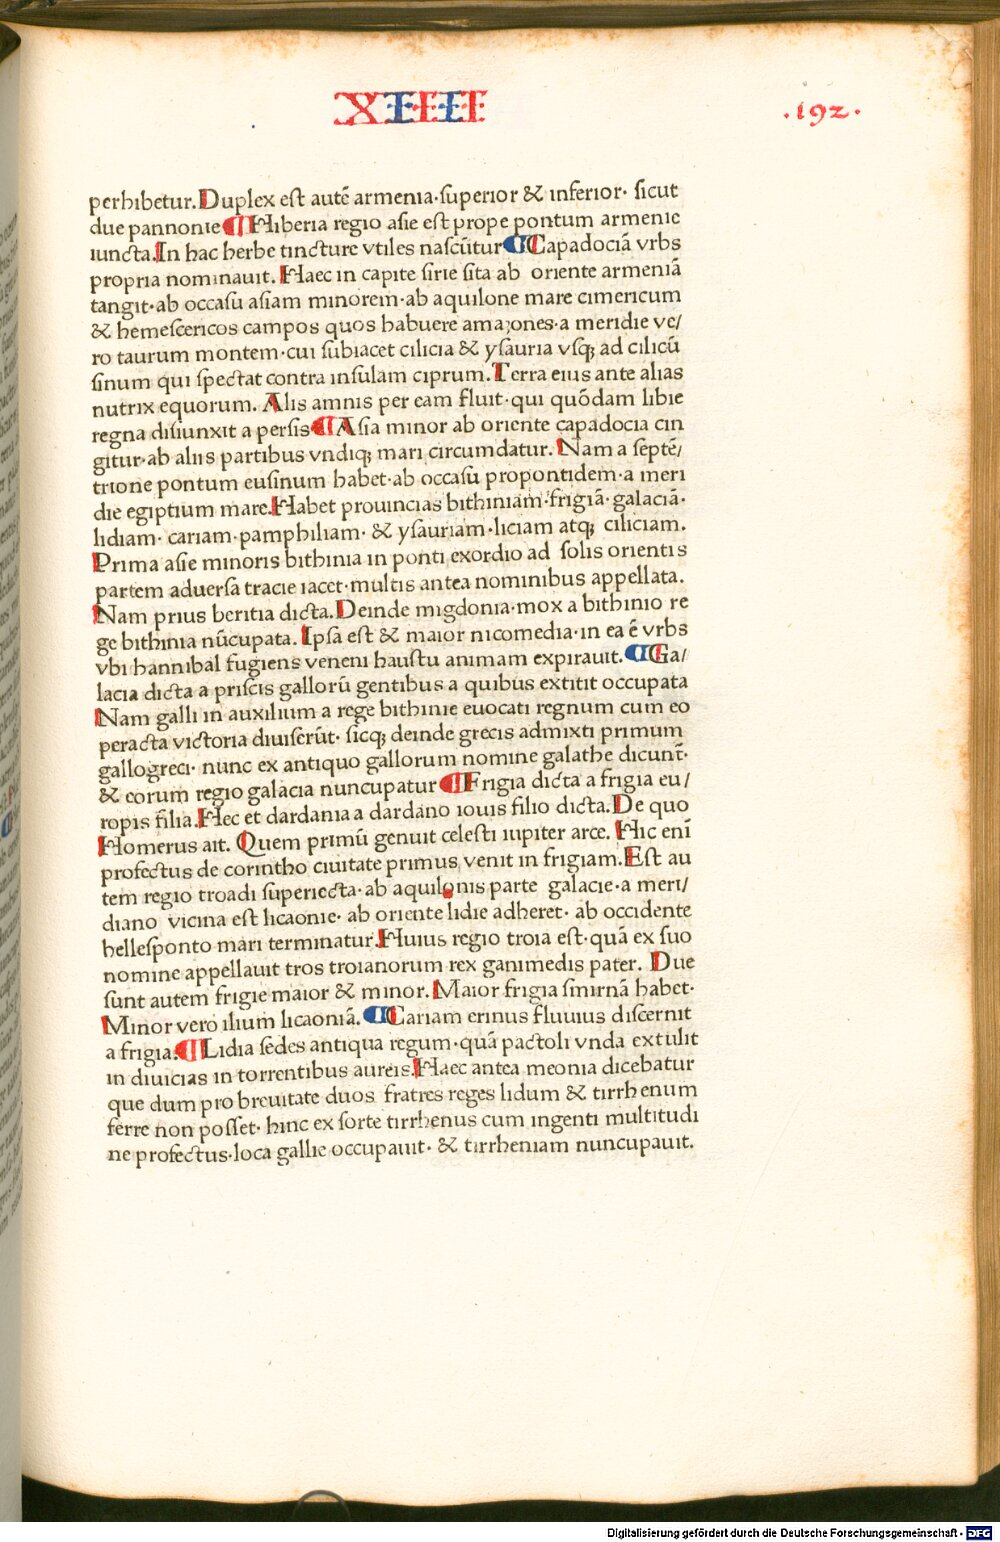 XIIII
.192.
perhibetur. Duplex est autē armenia·superior & inferior· sicut
due pannonie ¶ Hiberia regio asie est prope pontum armenie
iuncta. In hac herbe tincture vtiles nascūtur ¶ Capadociā vrbs
propria nominauit. Haec in capite sirie sita ab oriente armeniā
tangit·ab occasu asiam minorem·ab aquilone mare cimericum
& hemescericos campos quos habuere amazones·a meridie ve/
ro taurum montem·cui subiacet cilicia & ysauria vsq; ad cilicū
sinum qui spectat contra insulam ciprum. Terra eius ante alias
nutrix equorum. Alis amnis per eam fluit·qui quōdam libie
regna disiunxit a persis ¶ Asia minor ab oriente capadocia cin
gitur·ab aliis partibus vndiq; mari circumdatur. Nam a septē/
trione pontum eusinum habet·ab occasu propontidem·a meri
die egiptium mare. Habet prouincias bithiniam·frigiā·galaciā·
lidiam·cariam·pamphiliam· & ysauriam·liciam atq; ciliciam.
Prima asie minoris bithinia in ponti exordio ad solis orientis
partem aduersa tracie iacet·multis antea nominibus appellata.
Nam prius beritia dicta. Deinde migdonia·mox a bithinio re
ge bithinia nūcupata. Ipsa est & maior nicomedia·in ea ē vrbs
vbi hannibal fugiens veneni haustu animam expirauit. ¶ Ga/
lacia dicta a priscis gallorū gentibus a quibus extitit occupata
Nam galli in auxilium a rege bithinie euocati regnum cum eo
peracta victoria diuiserūt· sicq; deinde grecis admixti primum
gallogreci· nunc ex antiquo gallorum nomine galathe dicunt̄·
& eorum regio galacia nuncupatur ¶ Frigia dicta a frigia eu/
ropis filia. Hec et dardania a dardano iouis filio dicta. De quo
Homerus ait. Quem primū genuit celesti iupiter arce. Hic enī
profectus de corintho ciuitate primus venit in frigiam. Est au
tem regio troadi superiecta·ab aquilonis parte galacie·a meri/
diano vicina est licaonie· ab oriente lidie adheret· ab occidente
hellesponto mari terminatur. Huius regio troia est·quā ex suo
nomine appellauit tros troianorum rex ganimedis pater. Due
sunt autem frigie maior & minor. Maior frigia smirnā habet·
Minor vero ilium licaoniā. ¶ Cariam erinus fluuius discernit
a frigia. ¶ Lidia sedes antiqua regum·quā pactoli vnda extulit
in diuicias in torrentibus aureis. Haec antea meonia dicebatur
que dum pro breuitate duos fratres reges lidum & tirrhenum
ferre non posset· hinc ex sorte tirrhenus cum ingenti multitudi
ne profectus·loca gallie occupauit· & tirrheniam nuncupauit.
Digitalisierung gefördert durch die Deutsche Forschungsgemeinschaft - DFG